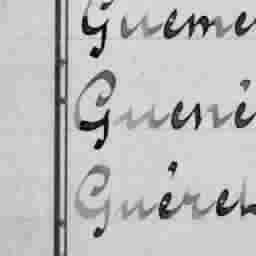 Gueme
Guené
Guéret